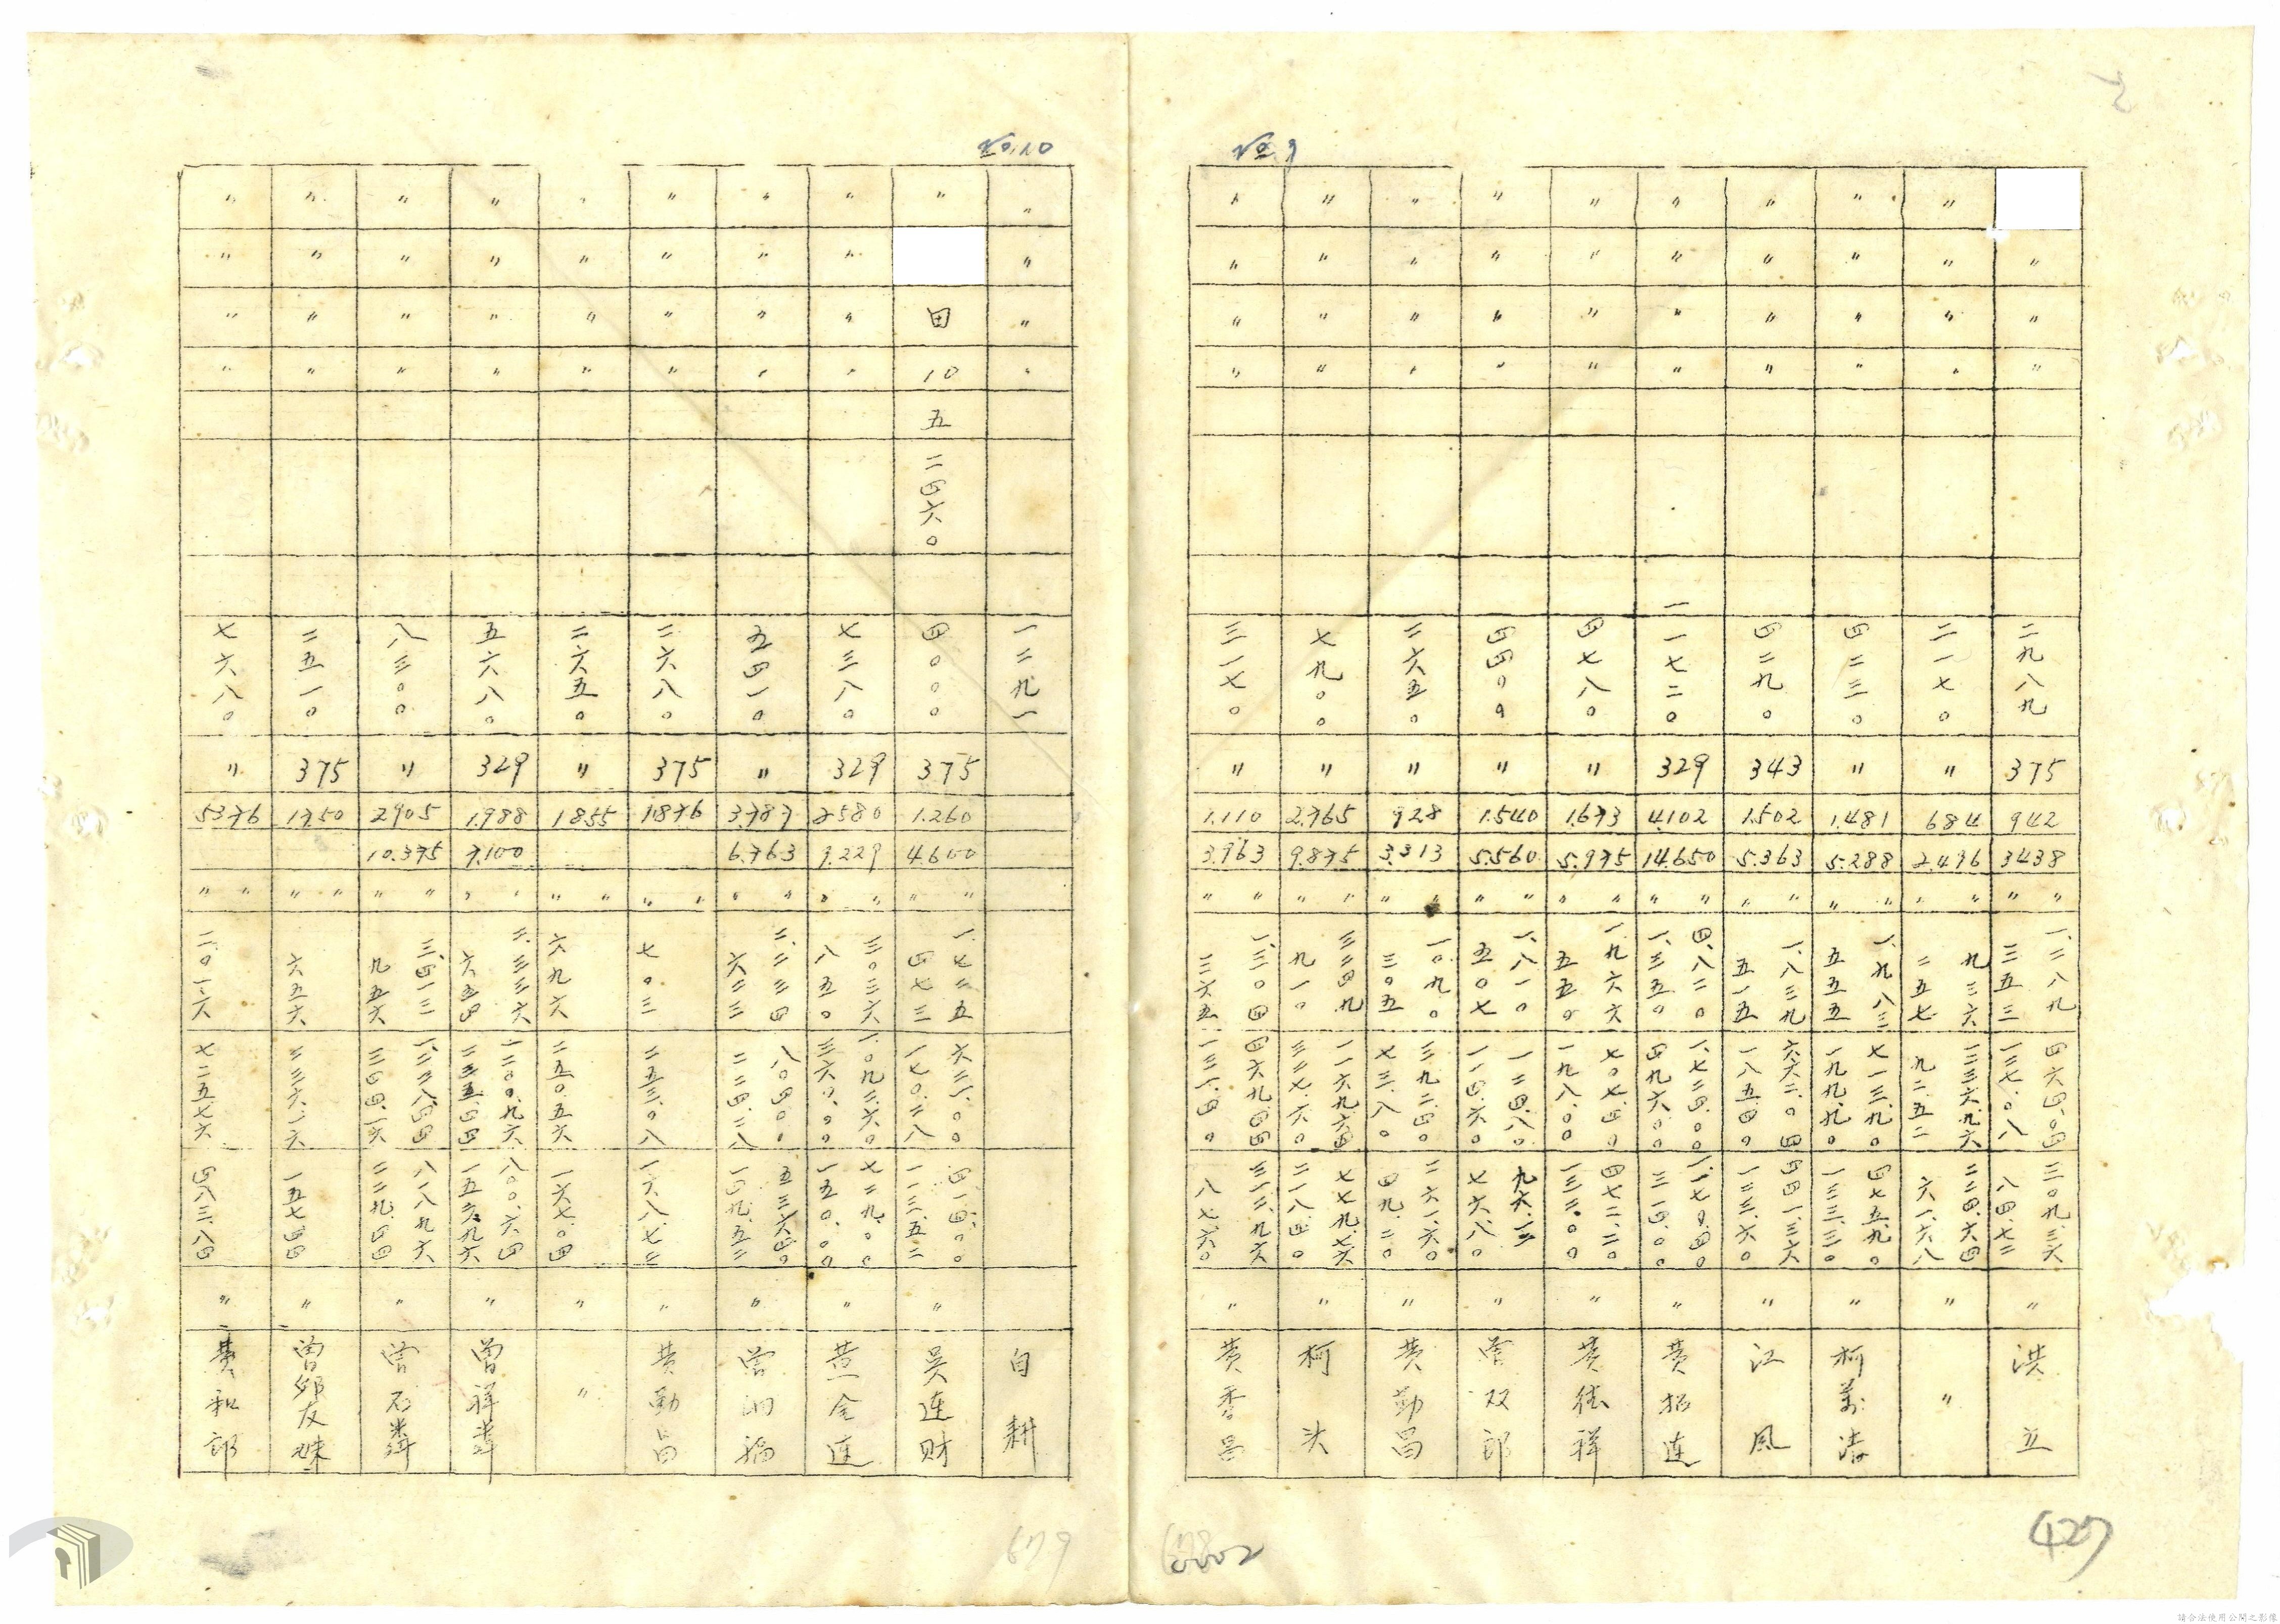 No. 9
〃 〃 〃 二九八九 375 942 3438 〃 〃 一、二八九 三五三 四六四.〇四 一二七.〇八 三〇九.三六 八四.七二 〃 洪立
〃 〃 〃 〃 二一七〇 〃 684 2.496 〃 〃 九三六 二五七 三三六.九六 九二.五二 二二四.六四 六一.六八 〃 〃
〃 〃 〃 〃 四二三〇 〃 1.481 5.288 〃 〃 一、九八三 五五五 七一三.九〇 一九九.九〇 四七五.九〇 一三三.三〇 〃 柯萬清
〃 〃 〃 〃 四二九〇 343 1.502 5.363 〃 〃 一、八三九 五一五 六六二.〇四 一八五.四〇 四四一.三六 一二三.六〇 〃 江風
〃 〃 〃 〃 一一七二〇 329 4.102 14.650 〃 〃 四、八二〇 一、三五〇 一、七二四.〇〇 四九六.〇〇 一、一七〇.四〇 三一四.〇〇 〃 黄招連
〃 〃 〃 〃 四七八〇 〃 1.673 5.975 〃 〃 一、九六六 五五〇 七〇七.四〇 一九八.〇〇 四七二.二〇 一三二.〇〇 〃 黄徳祥
〃 〃 〃 〃 四四〇〇 〃 1.540 5.560 〃 〃 一、八一〇 五〇七 一一四.六〇 七六.八〇 〃 曾双郎
〃 〃 〃 〃 二六五〇 〃 928 3.313 〃 〃 一、〇九〇 三〇五 三九二.四〇 七三.八〇 二六一.六〇 四九.二〇 〃 黄勤昌
〃 〃 〃 〃 七九〇〇 〃 2.765 9.875 〃 〃 三二四九 九一〇 一一六九.六四 三二七.六〇 七七九.七六 二一八.四〇 〃 柯头
〃 〃 〃 〃 三一七〇 〃 1.110 3.963 〃 〃 一、三〇四 三六五 四六九.四四 一三一.四〇 三一二.九六 八七.六〇 〃 黄香昌
427
No. 10
〃 〃 〃 〃 一二九一 自耕
〃 田 10 五 二四六〇 四〇〇〇 375 1.260 4.600 〃 〃 一、七二五 四七三 六二一.〇〇 一七〇.二八 四一四.〇〇 一一三.五二 〃 吴连财
〃 〃 〃 〃 七三八〇 329 2580 9.229 〃 〃 三〇三六 八五〇 一、〇九二.六〇 三六〇.〇〇 七二九.〇〇 一五〇.〇〇 〃 黄金連
〃 〃 〃 〃 五四一〇 〃 3.787 6.763 〃 〃 二、二三四 六二三 八〇四.〇〇 二二四.二八 五三六.四〇 一四九.五二 〃 曾福
〃 〃 〃 〃 二六八〇 375 1.876 〃 〃 七〇三 二五三.〇八 一六八.七二 〃 黄勤昌
〃 〃 〃 〃 二六五〇 〃 1855 〃 〃 六九六 二五〇.五六 一六七.〇四 〃 〃
〃 〃 〃 〃 五六八〇 329 1.988 7.100 〃 〃 二、三三六 六五四 一二〇〇.九六 二三五.四四 八〇〇.六四 一五六.九六 〃 曾祥
〃 〃 〃 〃 八三〇〇 〃 2905 10.375 〃 〃 三、四一二 九五六 一、二二八.四四 三四四.一六 八一八.九六 二二九.四四 〃 曾石
〃 〃 〃 〃 二五一〇 375 1750 〃 〃 六五六 二三六.一六 一五七.四四 〃 曾邱友妹
〃 〃 〃 〃 七六八〇 〃 5376 〃 〃 二.〇一六 七二五七六 四八三.八四 〃 黄和郎
679
678
0002
請合法使用公開之影像